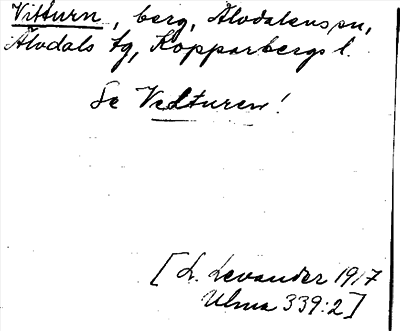 Vitturn, berg, Älvdalens sn,
Älvdals tg, Kopparbergs l.
Se Vedturen!
[L. Levander 1917
Ulma 339:2]